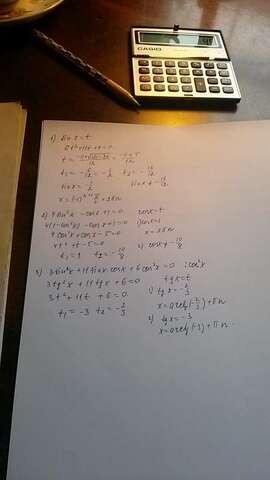 CASIO
1) sin x = t
6t²+11t+4=0
t₁ = -6/12 = -1/2 t₂ = -16/12
x = (-1)ᵏ⁺¹ π/6 + πn
2) 4 sin²x - cos x + 1 = 0 cos x = t
4(1-cos²x) - cos x + 1 = 0 cos x = 1
4 cos²x + cos x - 5 = 0 x = 2πn
4t² + t - 5 = 0
t₁ = 1 t₂ = -10/8 2) cos x ≠ -10/8
3) 3 sin²x + 11 sin x cos x + 6 cos²x = 0 : cos²x
3 tg²x + 11 tg x + 6 = 0 tg x = t
3t² + 11t + 6 = 0 1) tg x = -2/3
t₁ = -3 t₂ = -2/3 x = arctg(-2/3) + πn
2) tg x = -3
x = arctg(-3) + πn